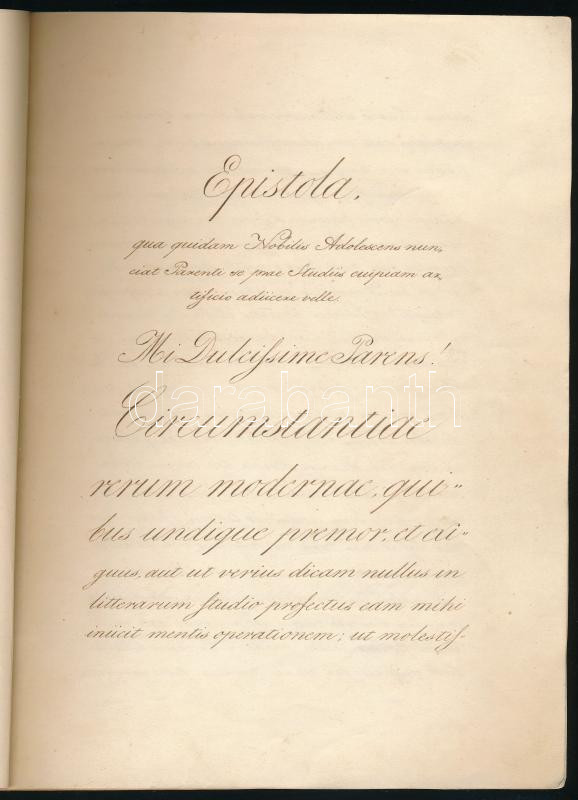 Epistola,
qua quidam Nobilis Adolescens nun,
ciat Parenti se prae Studiis cuipiam ar,
tificio adiicere velle.
Mi Dulcissime Parens!
darabanth
Circumstantiae
rerum modernae, qui„
bus undique premor, et exi„
guus, aut ut verius dicam nullus in
litterarum studio profectus eam mihi
iniicit mentis operationem; ut molestis„